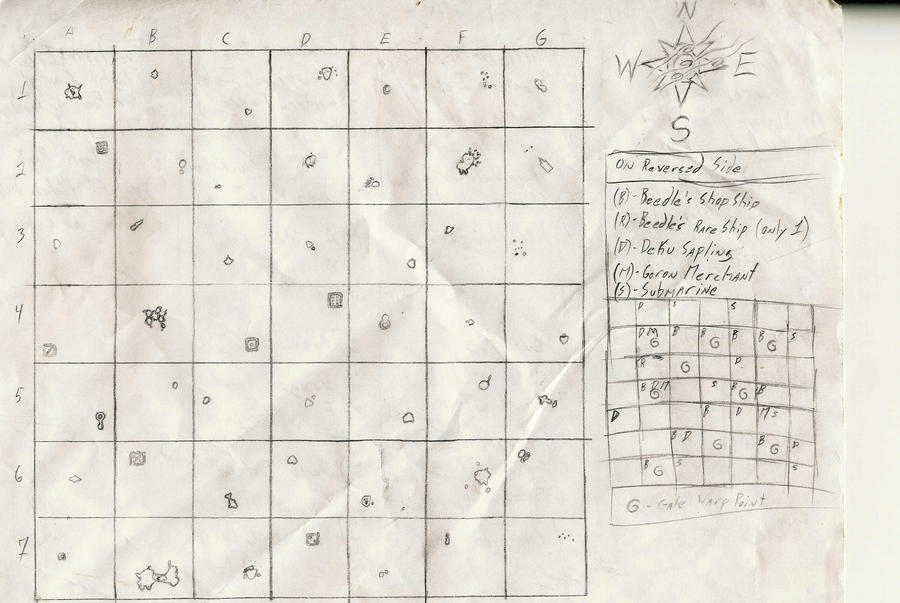 A B C D E F G
1
2
3
4
5
6
7
N
W E
S
On Reversed Side
(B)-Beedle's Shop Ship
(R)-Beedle's Rare Ship (only 1)
(D)-Deku Sapling
(M)-Goron Merchant
(S)-Submarine
D S S
D M G B B G B B G S
R G D
B D M G S B G B
D B D M S
B D G B G D
B G S S
G - Gale Warp Point